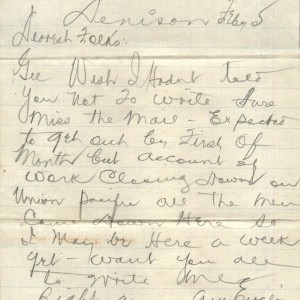 Denison Feby 5
Dearest Folks:
Gee Wish I Hadnt told
You Not To Write Sure
Miss the Mail - Expected
to get out by First Of
Month but account of
Work Closing Down on
Union Pacific all the men
Came Down Here so
I May be Here a week
yet - want you all
to write me
Right away